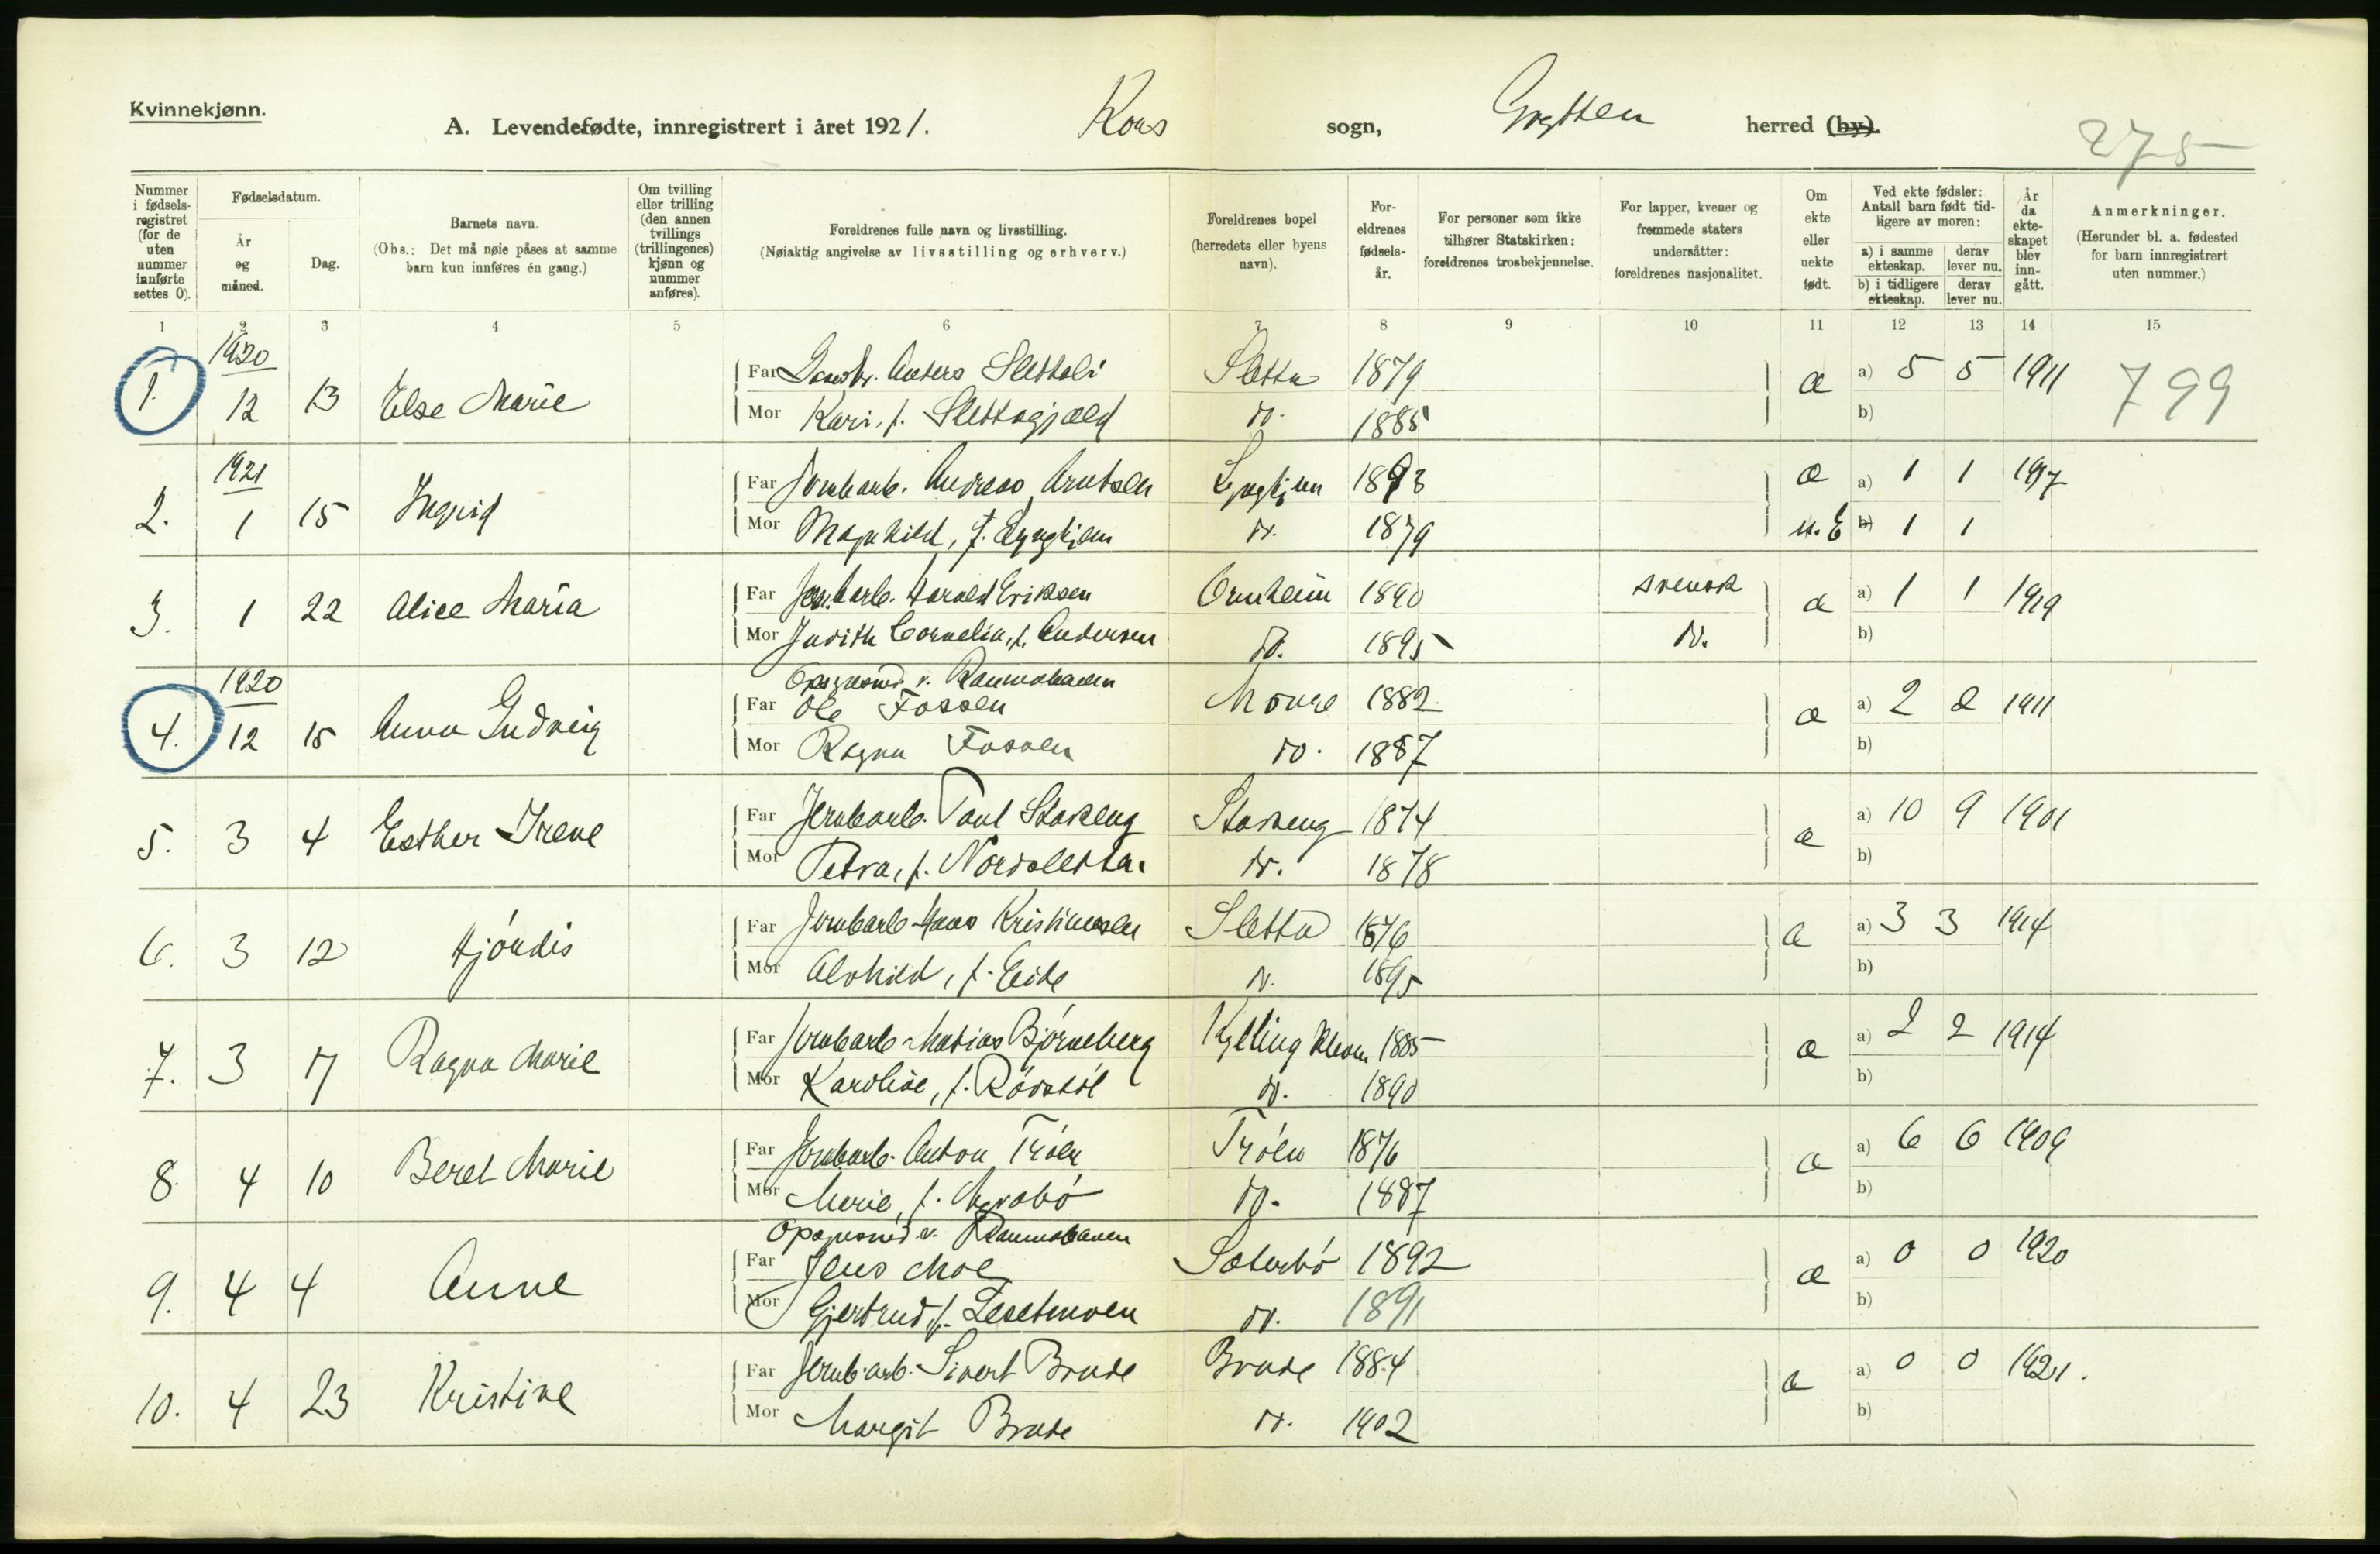 Kvinnekjønn.
A. Levendefødte, innregistrert i året 1921. Kors sogn, Grytten herred (by).
275
Nummer i fødsels-registret (for de uten nummer innførte settes 0).
Fødselsdatum.
År og måned.
Dag.
Barnets navn.
(Obs.: Det må nøie påses at samme barn kun innføres én gang.)
Om tvilling eller trilling (den annen tvillings (trillingenes) kjønn og nummer anføres).
Foreldrenes fulle navn og livsstilling.
(Nøiaktig angivelse av livsstilling og erhverv.)
Foreldrenes bopel (herredets eller byens navn).
For-eldrenes fødsels-år.
For personer som ikke tilhører Statskirken: foreldrenes trosbekjennelse.
For lapper, kvener og fremmede staters undersåtter: foreldrenes nasjonalitet.
Om ekte eller uekte født.
Ved ekte fødsler: Antall barn født tid-ligere av moren:
a) i samme ekteskap. derav lever nu.
b) i tidligere ekteskap. derav lever nu.
År da ekte-skapet blev inn-gått.
Anmerkninger.
(Herunder bl. a. fødested for barn innregistrert uten nummer.)
1 2 3 4 5 6 7 8 9 10 11 12 13 14 15
1920
1. 12 13 Else Marie Far Anders Slettali Sletta 1879 æ a) 5 5 1911 799
Mor Kari, f. Slettagjæld do. 1885 b)
1921
2. 1 15 Ingrid Far Jernbarb. Andreas Arntsen Lynghjem 1893 æ a) 1 1 1917
Mor Magnhild, f. Lynghjem do. 1879 u.E b) 1 1
3. 1 22 Alice Maria Far Jernbarb. Harald Eriksen Ormheim 1890 svensk æ a) 1 1 1919
Mor Judith Cornelia, f. Andersen do. 1895 do. b)
1920
Opsynsmd. v. Raumabanen
4. 12 15 Anna Gudveig Far Ole Fossen 1882 æ a) 2 2 1911
Mor Ragna Fossen do. 1887 b)
5. 3 4 Esther Irene Far Jernbarb. Paul Stakeng Stakeng 1874 æ a) 10 9 1901
Mor Petra, f. Nordsletta. do. 1878 b)
6. 3 12 Hjördis Far Jernbarb. Hans Kristiansen Sletta 1876 æ a) 3 3 1914
Mor Alvhild, f. Eide do. 1895 b)
7. 3 17 Ragna Marie Far Jernbarb. Matias Björneberg Kylling 1885 æ a) 2 2 1914
Mor Karoline, f. Rödstöl do. 1890 b)
8. 4 10 Beret Marie Far Jernbarb. Anton Tröen Tröen 1876 æ a) 6 6 1909
Mor Marie, f. do. 1887 b)
Opsynsmd. v. Raumabanen
9. 4 4 Anne Far Jens Moe Sæterbö 1892 æ a) 0 0 1920
Mor Gjertrud f. do. 1891 b)
10. 4 23 Kristine Far Jernb.arb. Sivert Brude Brude 1884 æ a) 0 0 1921.
Mor Margit Brude do. 1902 b)